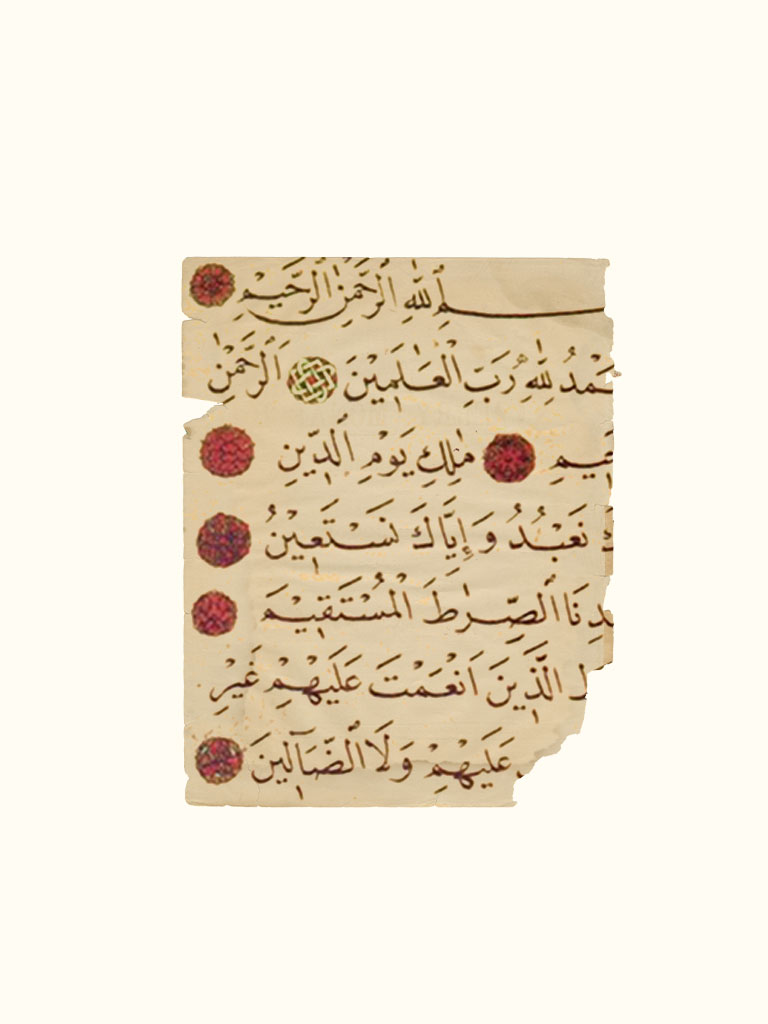 ـمِ ٱللّٰهِ ٱلرَّحْمٰنِ ٱلرَّحِيْمِ
ـمْدُ لِلّٰهِ رَبِّ الْعٰلَمِيْنَ اَلرَّحْمٰنِ
ـحِيْمِ مٰلِكِ يَوْمِ ٱلدِّيْنِ
نَعْبُدُ وَإِيَّاكَ نَسْتَعِيْنُ
ـدِنَا ٱلصِّرٰطَ الْمُسْتَقِيْمَ
الَّذِيْنَ اَنْعَمْتَ عَلَيْهِمْ غَيْرِ
عَلَيْهِمْ وَلَا ٱلضَّآلِّيْنَ